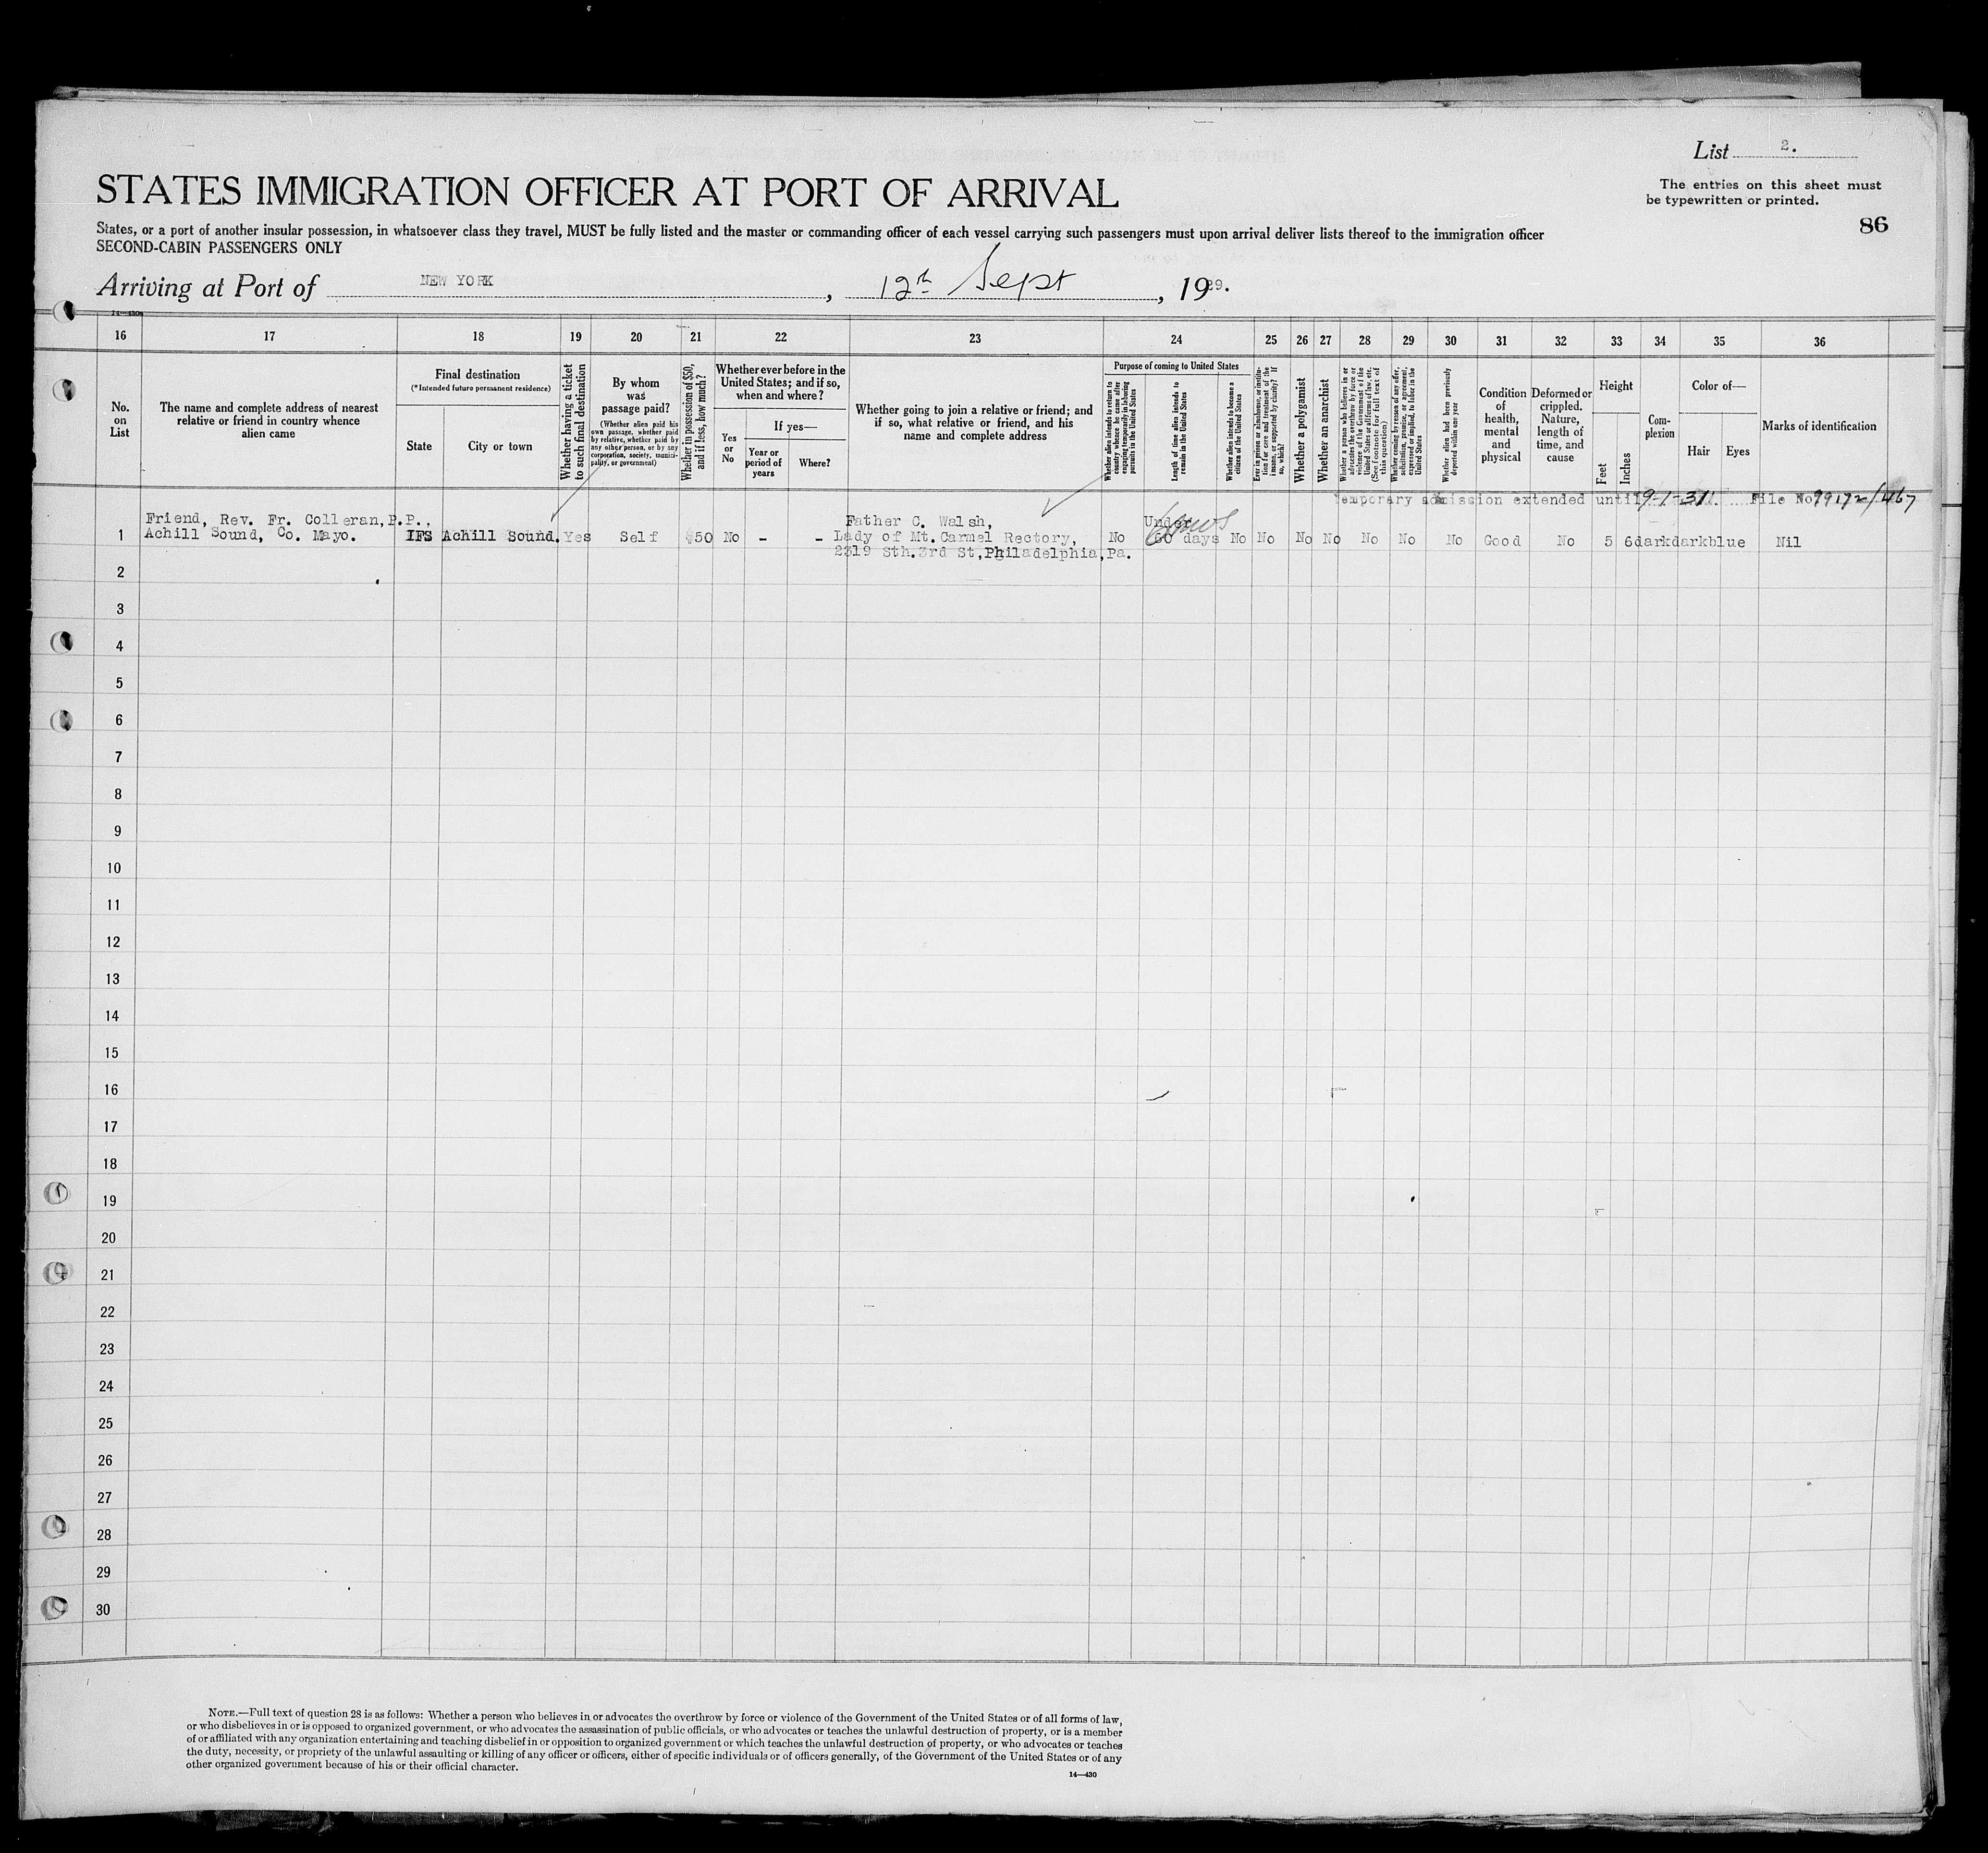 List 2.
The entries on this sheet must
be typewritten or printed.
86
STATES IMMIGRATION OFFICER AT PORT OF ARRIVAL
States, or a port of another insular possession, in whatsoever class they travel, MUST be fully listed and the master or commanding officer of each vessel carrying such passengers must upon arrival deliver lists thereof to the immigration officer
SECOND-CABIN PASSENGERS ONLY
Arriving at Port of NEW YORK, 12th Sept, 1929.
14—430
16 17 18 19 20 21 22 23 24 25 26 27 28 29 30 31 32 33 34 35 36
No. on List
The name and complete address of nearest
relative or friend in country whence
alien came
Final destination
(*Intended future permanent residence)
State
City or town
Whether having a ticket
to such final destination
By whom
was
passage paid?
(Whether alien paid his
own passage, whether paid
by relative, whether paid by
any other person, or by any
corporation, society, munici-
pality, or government)
Whether in possession of $50,
and if less, how much?
Whether ever before in the
United States; and if so,
when and where?
Yes or No
If yes—
Year or
period of
years
Where?
Whether going to join a relative or friend; and
if so, what relative or friend, and his
name and complete address
Purpose of coming to United States
Whether alien intends to return to
country whence he came after
engaging temporarily in laboring
pursuits in the United States
Length of time alien intends to
remain in the United States
Whether alien intends to become a
citizen of the United States
Ever in prison or almshouse, or institu-
tion for care and treatment of the
insane, or supported by charity? If
so, which?
Whether a polygamist
Whether an anarchist
Whether a person who believes in or
advocates the overthrow by force or
violence of the Government of the
United States or all forms of law, etc.
(See footnote for full text of
this question)
Whether coming by reason of any offer,
solicitation, promise, or agreement,
expressed or implied, to labor in the
United States
Whether alien had been previously
deported within one year
Condition
of
health,
mental
and
physical
Deformed or
crippled.
Nature,
length of
time, and
cause
Height
Feet
Inches
Com-
plexion
Color of—
Hair
Eyes
Marks of identification
Temporary admission extended until 9-1-31. File No. 99172/467
1 Friend, Rev. Fr. Colleran, P.P.,
Achill Sound, Co. Mayo.
IFS Achill Sound. Yes Self $50 No - -
Father C. Walsh,
Lady of Mt. Carmel Rectory,
2319 Sth. 3rd St, Philadelphia, Pa.
No
Under
60 days
No No No No No No No Good No 5 6 dark dark blue Nil
2
3
4
5
6
7
8
9
10
11
12
13
14
15
16
17
18
19
20
21
22
23
24
25
26
27
28
29
30
NOTE.—Full text of question 28 is as follows: Whether a person who believes in or advocates the overthrow by force or violence of the Government of the United States or of all forms of law,
or who disbelieves in or is opposed to organized government, or who advocates the assassination of public officials, or who advocates or teaches the unlawful destruction of property, or is a member
of or affiliated with any organization entertaining and teaching disbelief in or opposition to organized government or which teaches the unlawful destruction of property, or who advocates or teaches
the duty, necessity, or propriety of the unlawful assaulting or killing of any officer or officers, either of specific individuals or of officers generally, of the Government of the United States or of any
other organized government because of his or their official character.
14—430